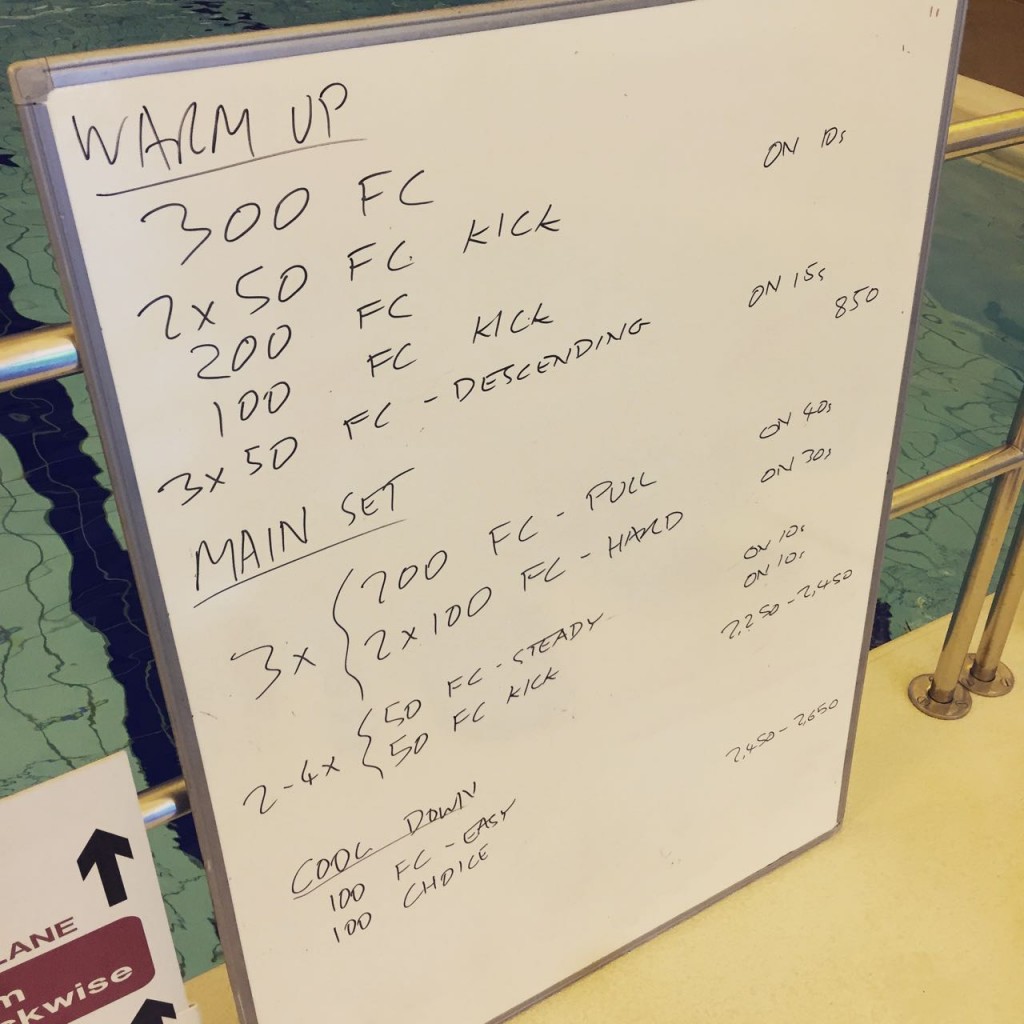 WARM UP
300 FC
2 x 50 FC KICK ON 10s
200 FC
100 FC KICK
3 x 50 FC - DESCENDING ON 15s
850
MAIN SET
3 x { 200 FC - PULL ON 40s
2 x 100 FC - HARD ON 30s
2-4 x { 50 FC - STEADY ON 10s
50 FC KICK ON 10s
2,250 - 2,450
COOL DOWN
100 FC - EASY
100 CHOICE
2,450 - 2,650
LANE